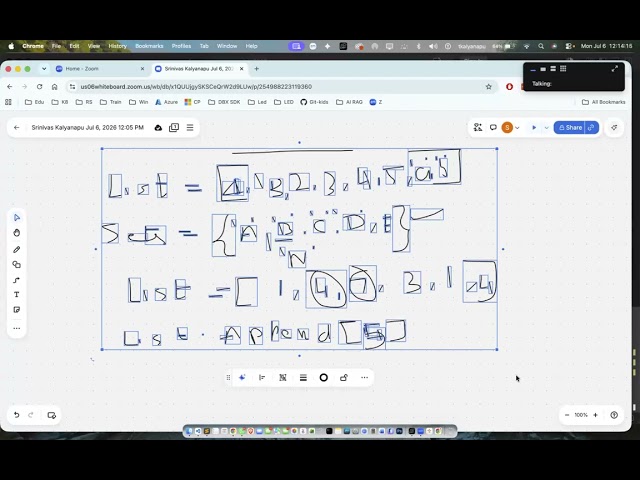 Chrome File Edit View History Bookmarks Profiles Tab Window Help tkalyanapu Mon Jul 6 12:14:15
Home - Zoom Srinivas Kalyanapu Jul 6, 20
us06whiteboard.zoom.us/wb/db/x1QUUjgySKSCeQrW2d9LUw/p/254988223119360
Talking:
Edu K8 RS Train Win Azure CP DBX SDK Led LED Git-kids AI RAG Z All Bookmarks
Srinivas Kalyanapu Jul 6, 2026 12:05 PM 1 S Share
List =
Set = { A, B, C, D, E }
List = [ 1, 4, 7, 3, 1, 4]
List . Append [5]
100%